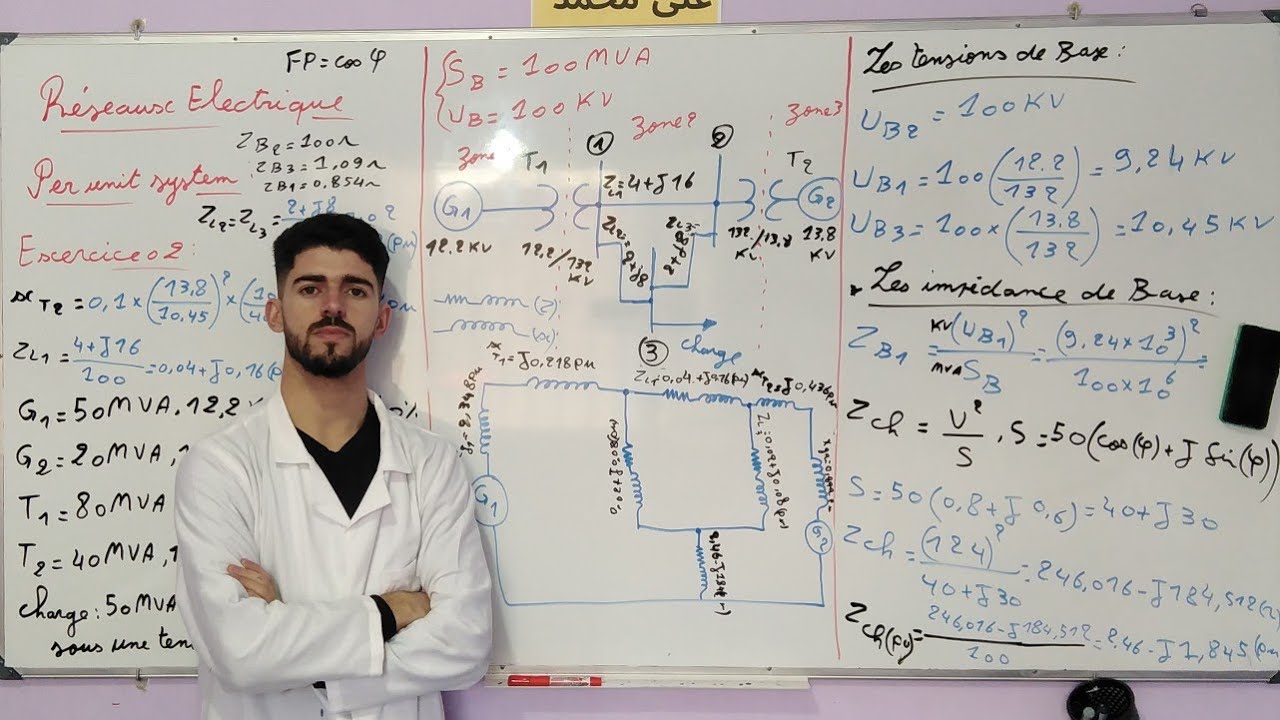 علي محمد
FP = cos φ
Réseaux Electrique
Z_B2 = 100Ω
Z_B3 = 1,09Ω
Z_B1 = 0,854Ω
Per unit system
Z_L2 = Z_L3 = 2+J8
Exercice 02 :
x_T2 = 0,1 × (13,8/10,45)² × (10
Z_L1 = 4+J16/100 = 0,04+J0,16(p
G1 = 50MVA, 12,2
G2 = 20MVA, 1
T1 = 80MVA
T2 = 40MVA, 1
charge : 50MVA
sous une ten
{ S_B = 100 MVA
U_B = 100 KV
Zone
Zone 2
Zone 3
T1
①
②
T2
G1
Z_L1 = 4+J16
G2
Z_L2 = 2+J8
Z_L3 = 2+J8
12.2 KV
12,2/132 KV
132/13,8 KV
13.8 KV
(Z)
(x)
charge
③
x_T1 = J0,218pu
Z_L1 = 0,04+J0,16(pu)
x_T2 = J0,436pu
0,02+J0,08(pu)
Z_L3 = 0,02+J0,08(pu)
G1
G2
Les tensions de Base :
U_B2 = 100 KV
U_B1 = 100(12.2/132) = 9,24 KV
U_B3 = 100×(13.8/132) = 10,45 KV
Les impédance de Base :
Z_B1 = KV(U_B1)²/MVA S_B = (9,24×10³)²/100×10⁶ =
Z_ch = V²/S , S = 50(cos(φ)+J Sin(φ))
S = 50(0,8+J0,6) = 40+J30
Z_ch = (124)²/40+J30 = 246,016-J184,512(Ω
Z_ch(pu) = 246,016-J184,512/100 = 2.46-J1,845(pu